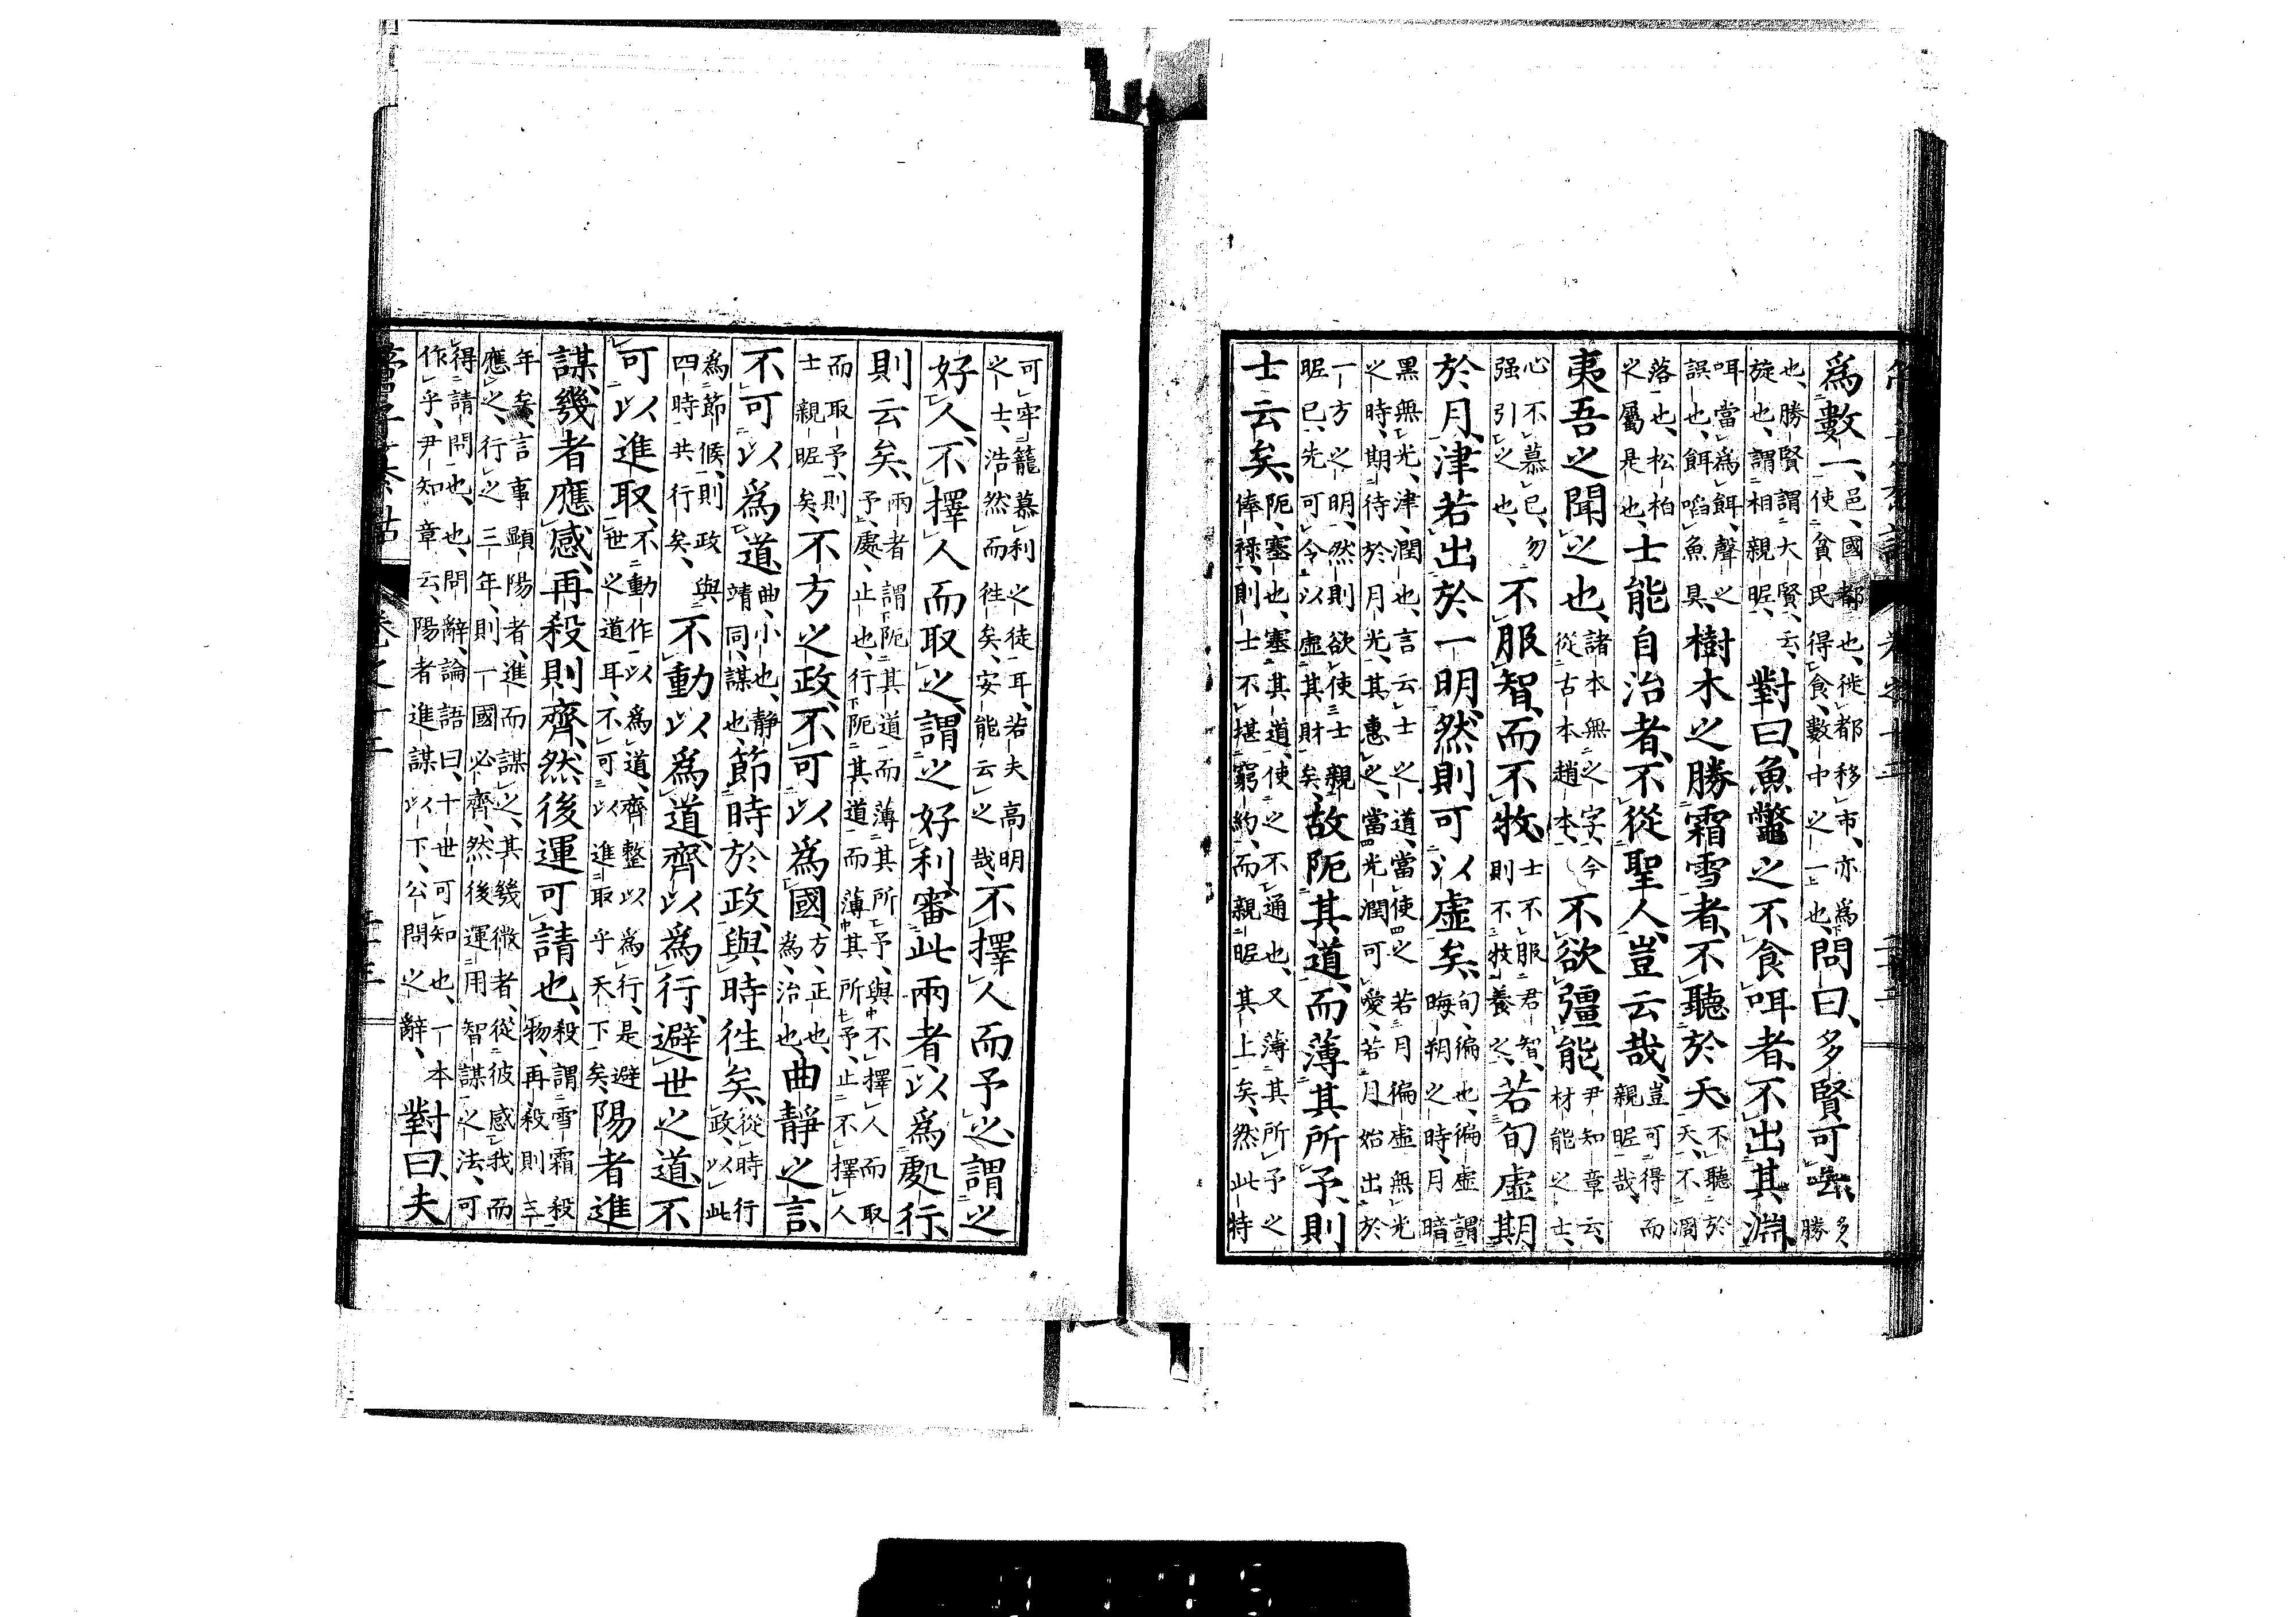 爲數一、邑、國都也、徙都移市、亦爲使貧民得食、數中之一也、問曰、多賢可云、多、勝
也、勝賢謂大賢、云、旋也、謂相親暱、對曰、魚鼈之不食咡者、不出其淵、
咡當爲餌、聲之誤也、餌啗魚具、樹木之勝霜雪者、不聽於天、不聽於天、不凋
落也、松柏之屬是也、士能自治者、不從聖人、豈云哉、豈可得而親暱哉、
夷吾之聞之也、諸本無之字、今從古本趙本、不欲彊能、尹知章云、材能之士、
心不慕已、勿强引之也、不服智、而不牧、士不服君智、則不牧養之、若旬虛期
於月、津若出於一明、然則可以虛矣、旬、徧也、徧虛謂晦朔之時、月暗
黑無光、津、潤也、言云士之道、當使之若月徧虛無光之時、期待於月光、其惠之、當光潤可愛、若月始出於
一方之明、然則欲使士親暱已、先可令以虛其財矣、故阨其道、而薄其所予、則
士云矣、阨、塞也、塞其道、使之不通也、又薄其所予之俸祿、則士不堪窮約、而親暱其上矣、然此特
可牢籠慕利之徒耳、若夫高明之士、浩然而徃矣、安能云之哉、不擇人而予之、謂之
好人、不擇人而取之、謂之好利、審此兩者、以爲處行、
則云矣、兩者謂阨其道而薄其所予、與不擇人而取予、處、止也、行阨其道而薄其所予、止不擇人
而取予、則士親暱矣、不方之政、不可以爲國、方、正也、爲、治也、曲靜之言、
不可以爲道、曲、小也、靜靖同、謀也、節時於政、與時徃矣、從時行政、以此
爲節候、則政與四時共行矣、不動以爲道、齊以爲行、避世之道、不
可以進取、不動作以爲道、齊整以爲行、是避世之道耳、不可以進取乎天下矣、陽者進
謀、幾者應感、再殺則齊、然後運可請也、殺謂雪霜殺物、再殺則三
年矣、言事顯陽者、進而謀之、其幾微者、從彼感我而應之、行之三年、則一國必齊、然後運用智謀之法、可
得請問也、也、問辭、論語曰、十世可知也、一本作乎、尹知章云、陽者進謀以下、公問之辭、對曰、夫